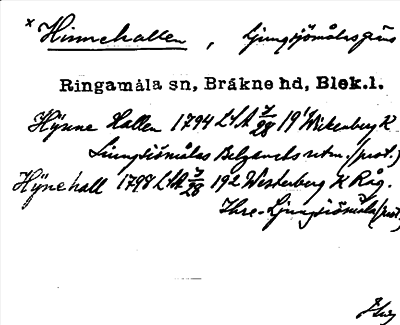 x Hinnehallen, Ljungsjömålagräns
Ringamåla sn, Bräkne hd, Blek.l.
Hynne Hallen 1794 LSA 7/28 19¹ Wickenberg K
Ljungsiömålas Belgand rtm. (post.)
Hÿnehall 1798 LSA 7/28 19 2 Westerberg K Råg.
Ihre - Ljungsiömåla (post.)